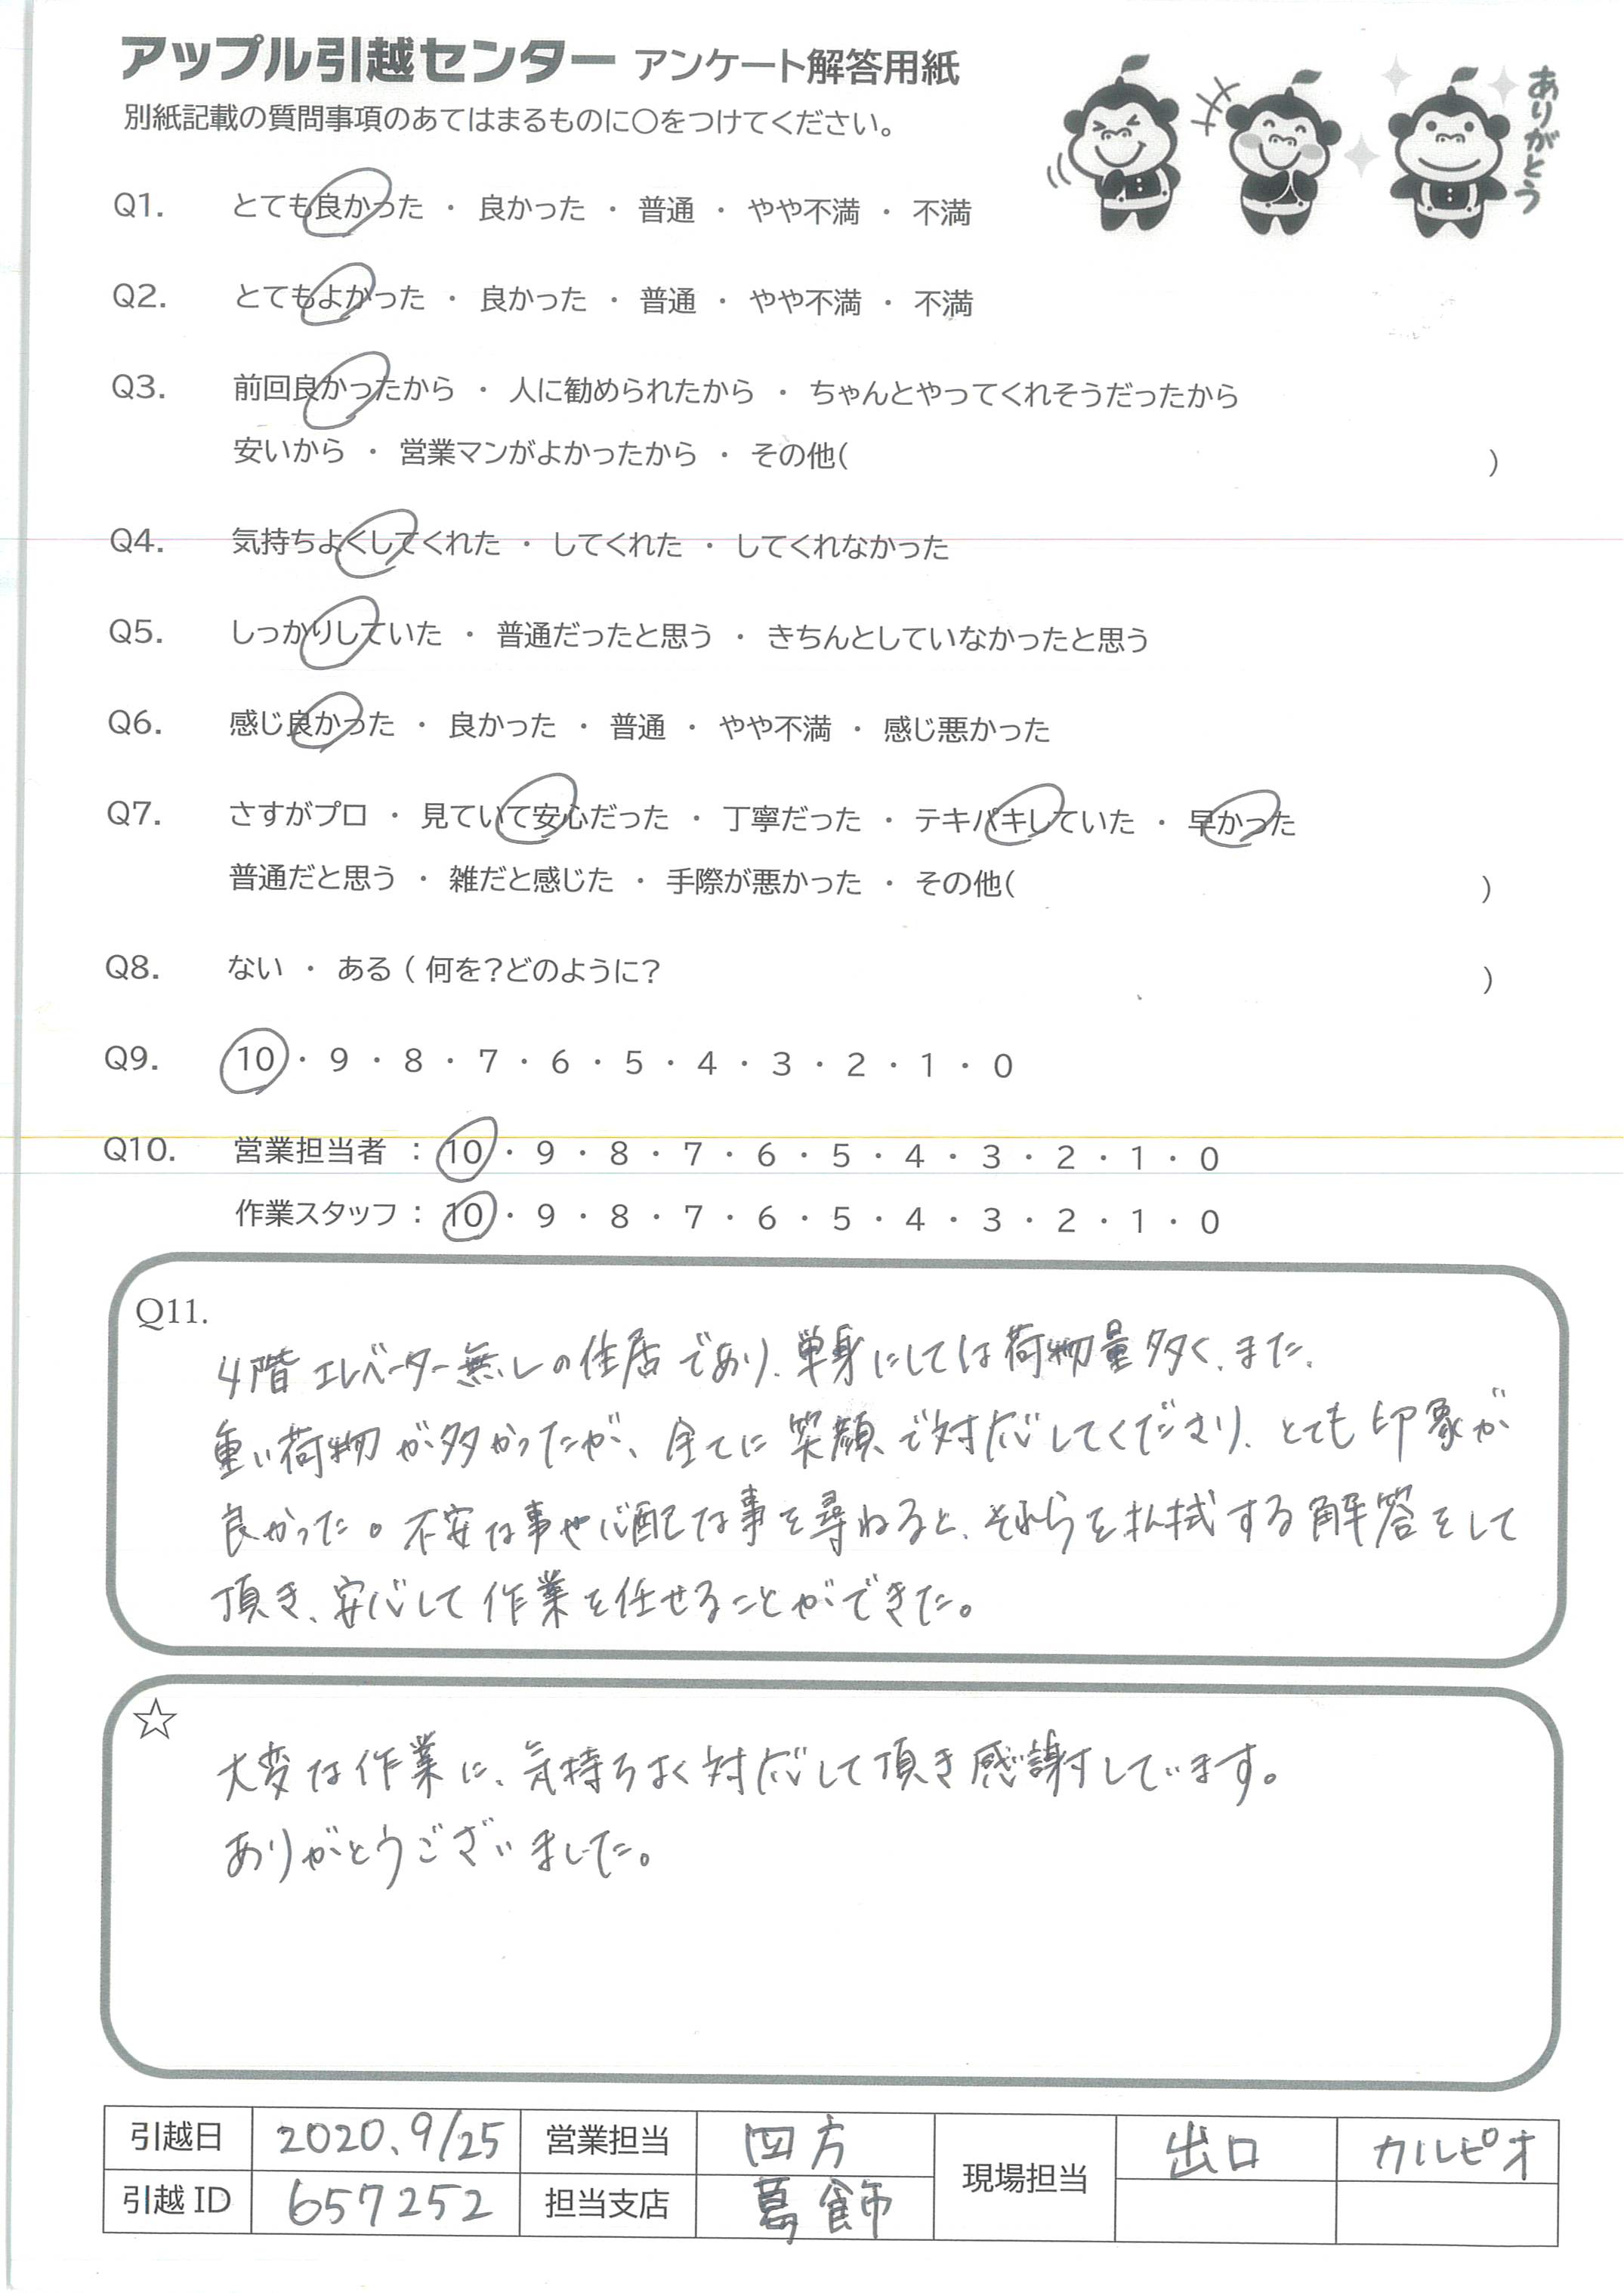 アップル引越センター アンケート解答用紙
ありがとう
別紙記載の質問事項のあてはまるものに〇をつけてください。
Q1. とても良かった ・ 良かった ・ 普通 ・ やや不満 ・ 不満
Q2. とてもよかった ・ 良かった ・ 普通 ・ やや不満 ・ 不満
Q3. 前回良かったから ・ 人に勧められたから ・ ちゃんとやってくれそうだったから
安いから ・ 営業マンがよかったから ・ その他( )
Q4. 気持ちよくしてくれた ・ してくれた ・ してくれなかった
Q5. しっかりしていた ・ 普通だったと思う ・ きちんとしていなかったと思う
Q6. 感じ良かった ・ 良かった ・ 普通 ・ やや不満 ・ 感じ悪かった
Q7. さすがプロ ・ 見ていて安心だった ・ 丁寧だった ・ テキパキしていた ・ 早かった
普通だと思う ・ 雑だと感じた ・ 手際が悪かった ・ その他( )
Q8. ない ・ ある ( 何を?どのように? )
Q9. 10 ・ 9 ・ 8 ・ 7 ・ 6 ・ 5 ・ 4 ・ 3 ・ 2 ・ 1 ・ 0
Q10. 営業担当者 : 10 ・ 9 ・ 8 ・ 7 ・ 6 ・ 5 ・ 4 ・ 3 ・ 2 ・ 1 ・ 0
作業スタッフ : 10 ・ 9 ・ 8 ・ 7 ・ 6 ・ 5 ・ 4 ・ 3 ・ 2 ・ 1 ・ 0
Q11.
4階エレベーター無しの住居であり、単身にしては荷物量多く、また、
重い荷物が多かったが、全てに笑顔で対応してくださり、とても印象が
良かった。不安な事や心配な事を尋ねると、それらを払拭する解答をして
頂き、安心して作業を任せることができた。
☆
大変な作業に、気持ちよく対応して頂き感謝しています。
ありがとうございました。
引越日 2020.9/25 営業担当 四方 現場担当 出口 カルピオ
引越ID 657252 担当支店 葛飾